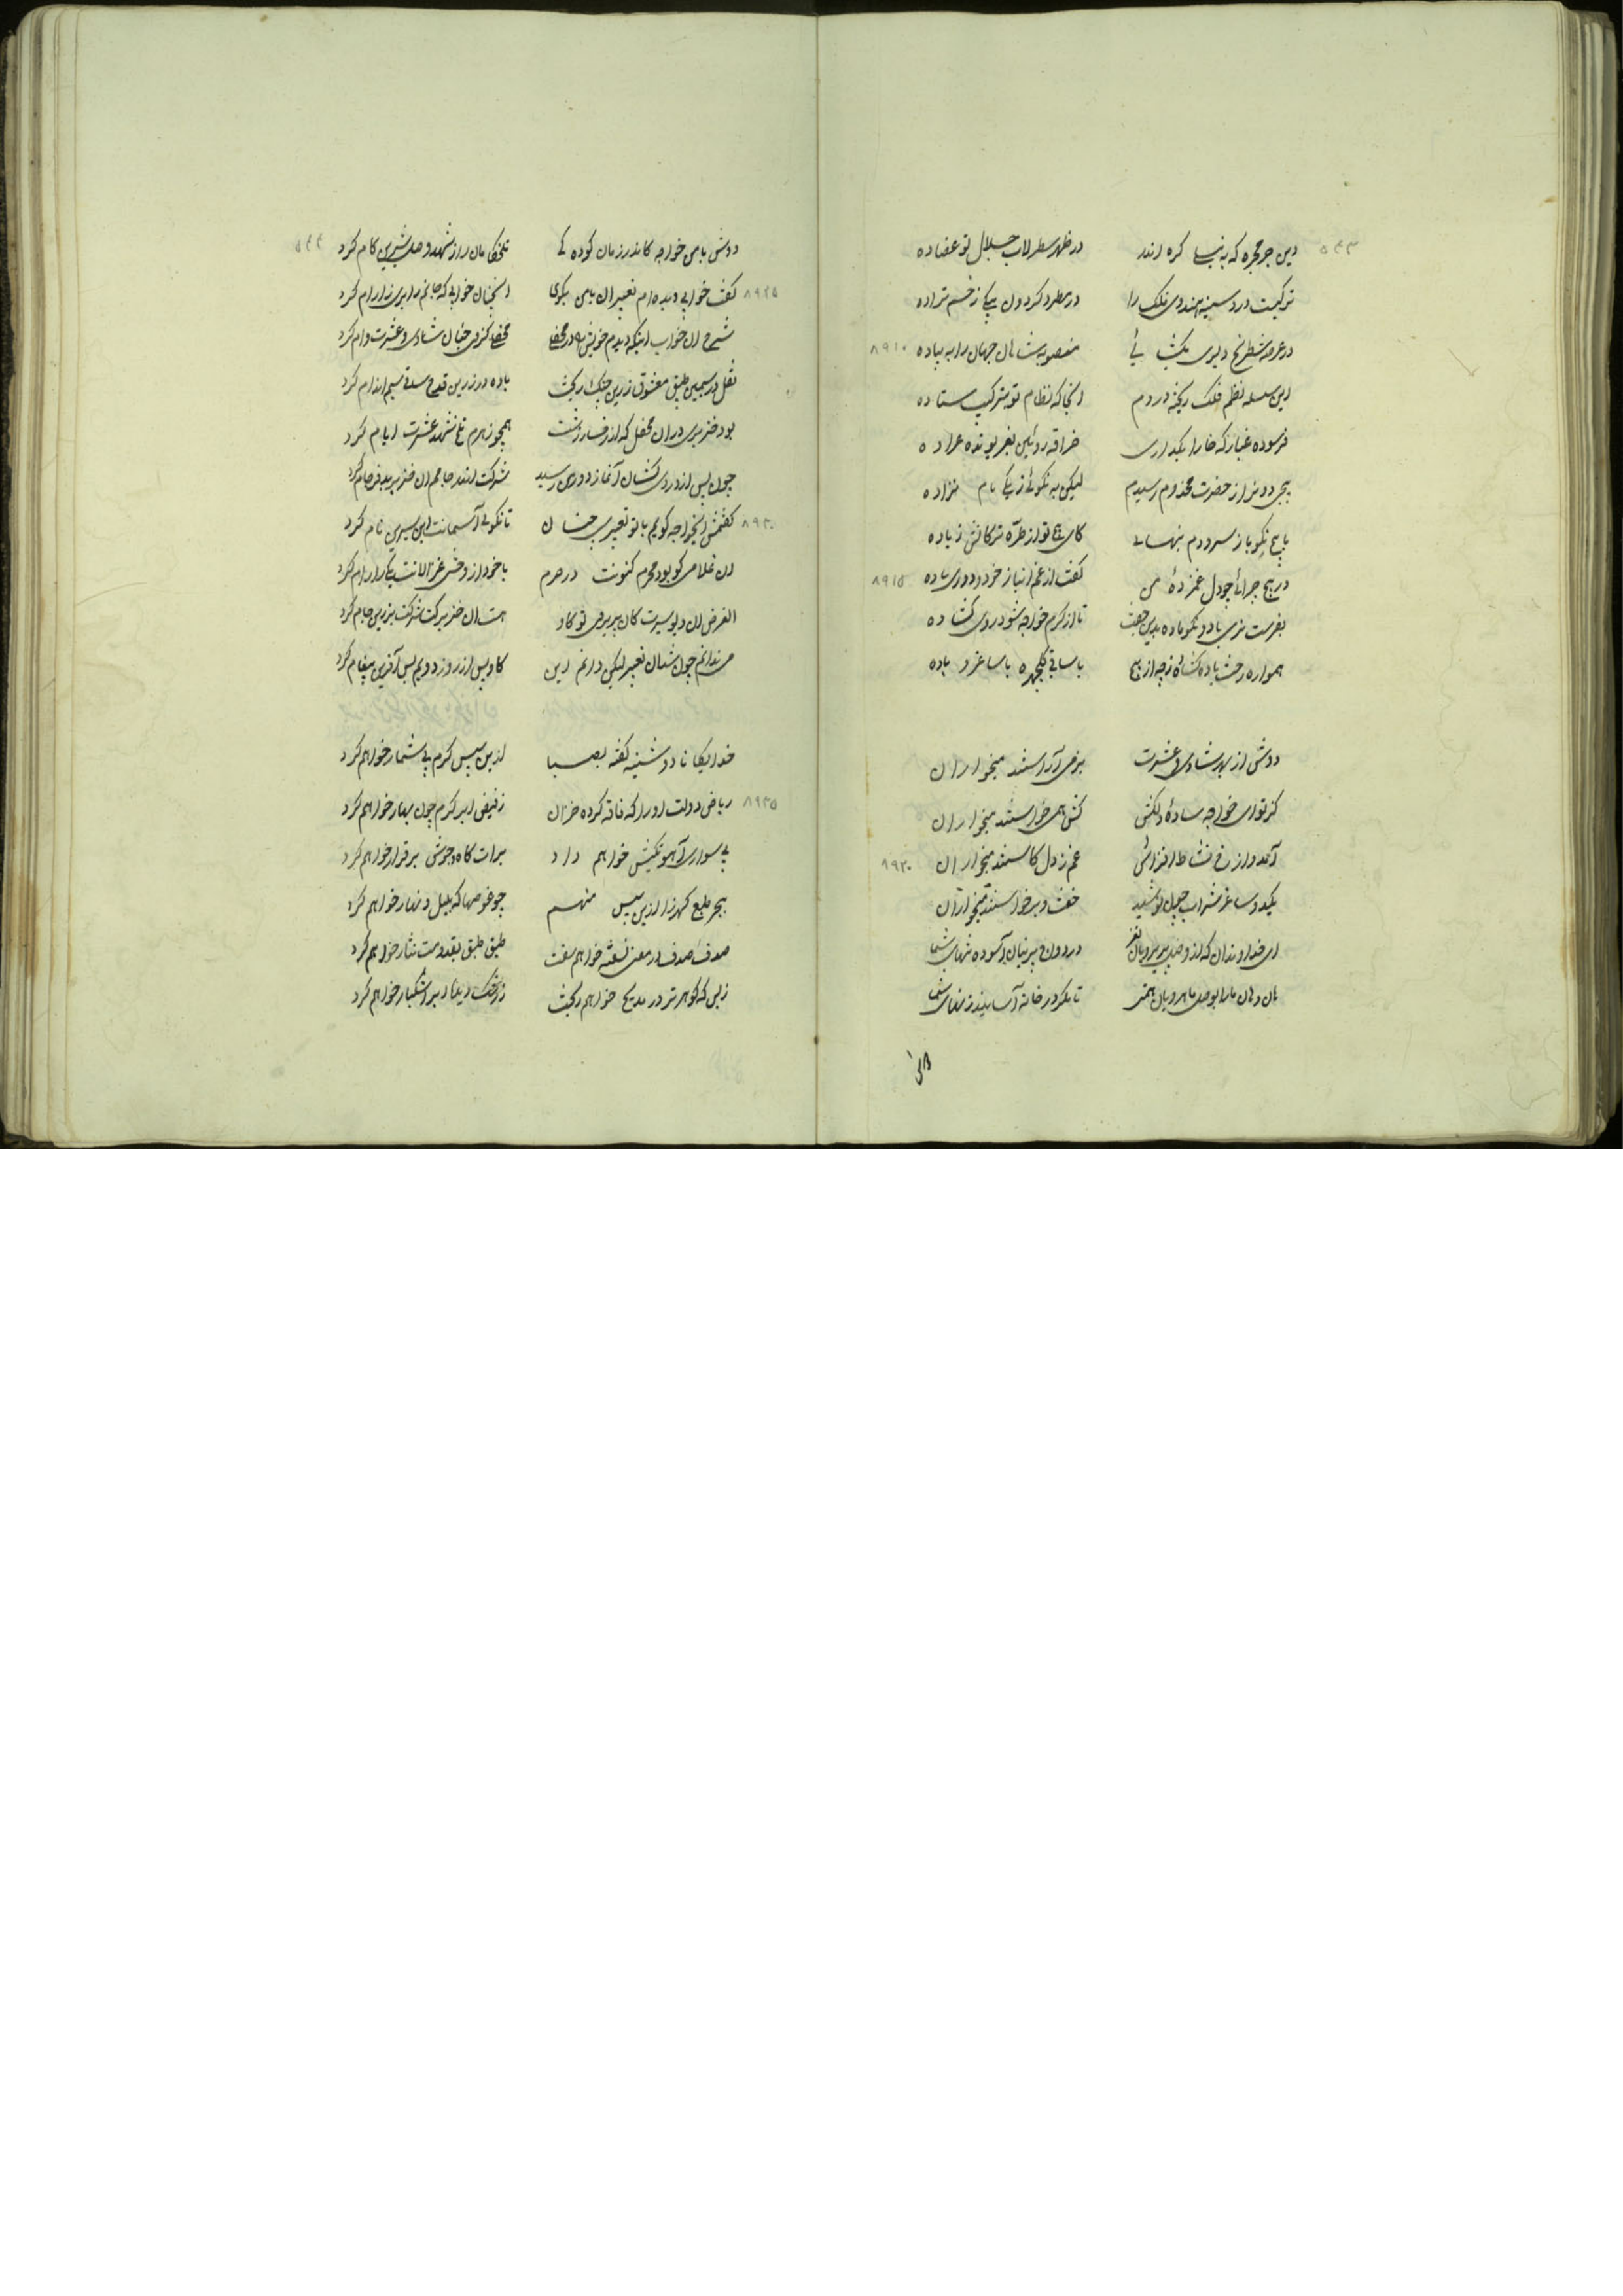 دین جرم مجره که به نیسا کره اندر در ظهر سطرلاب جلال تو عضاده
ترکیت در دسینه هندوی فلک را در مطرد کردون یکی زخم تراده
در عرصه شطرنج دلیری یکت بی منصوبه شاهان جهان را به پیاده ۸۹۱۰
این سلسله نظم فلک ریخته در دم انجا که نظام تو بترکیب ستاده
فرسوده غبار که خارا بکدازی عراده
هجی دو نزار حضرت مخدوم رسیدم لیکن به نکوئی زیکی مام نزاده
پاسخ نکو باز سرودم بنهانی کای تو از طره ترکانش زیاده
در هیچ چرائی چو دل غمزده من کفت از غم انباز خود و دوری ماده ۸۹۱۵
بفرست نری باد و نکو ماده بدین جفت تا از کرم خواجه شود روی کشاده
همواره رخت باده کشاده زچه از هیچ با ساقی کلچهره با ساغر و باده
دوش از بهر شادی و عشرت بزمی آراستند میخواران
کز تو ای خواجه ساده دلکش کش همی خواستند میخواران
آمد و از رخ نشاط افزائی غم ز دل کاستند میخواران ۸۹۲۰
یکدو ساغر شراب چون نوشید خفت و برخواستند میخواران
ای خداوندان که از وصل پریرویان نغز در درون پرنیان آسوده تنهای شما
هان و هان ما را بوصل ماهرویان همتی تا مکر در خانه آسایند زنهای شما
دوش با من خواجه کاندر زمان کوده کی تلخکامان را ز شهد وصل شیرین کام کرد
کفت خوابی دیده ام تعبیر ان با من بکوی انچنان خوابی که جانم را بری زارام کرد ۸۹۲۵
شرح ان خواب اینکه دیدم خویش را در محفلی محفلی کز وی جنان شادی و عشرت وام کرد
نقل در سیمین طبق معشوق زرین چنک ریخت باده در زرین قدح ساقی سیم اندام کرد
بود خنزیری در ان محفل که از رخسار زشت همچو زهرم تلخ شهد عشرت ایام کرد
چون پس از دردی کشان آغاز دور من رسید شرکت اندر جامم ان خنزیر بد فرجام کرد
کفتمش ایخواجه کویم با تو تعبیری چنان تا نکوئی آسمانت ابن سیرین نام کرد ۸۹۳۰
ان غلامی کو بود محرم کنونت در حرم با خود از وحشی غزالانت یکی را رام کرد
الغرض ان دیو سیرت کان پریروی تو کاد هست ان خنزیر کت شرکت بزرین جام کرد
می ندانم چون شد ان تعبیر لیکن دانم این کاو پس از روز دویم بس آفرین پیغام کرد
خدایکانا دوشینه کفته بصبا ازین سپس کرم بی شمار خواهم کرد
ریاض دولت او را که فاقه کرده خزان ز فیض ابر کرم چون بهار خواهم کرد ۸۹۳۵
پی سواری آهو تکیش خواهم داد برات کاه و جوش برقرار خواهم کرد
ببحر طبع کهرزا ازین سپس منهم چو غوصها که بلیل و نهار خواهم کرد
صدف صدف در معنی نسفته خواهم سفت طبق طبق بقدومت نثار خواهم کرد
ز بس که کوهر تر در مدیح خواهم ریخت ز رشک دیده ابر اشکبار خواهم کرد